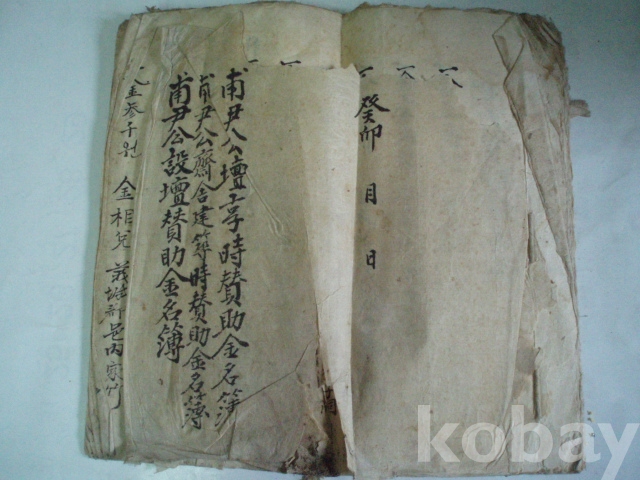 癸卯 月 日
甫尹公壇享時賛助金名簿
甫尹公齋舍建築時賛助金名簿
甫尹公設壇賛助金名簿
金参千원 金相允 邑內
kobay